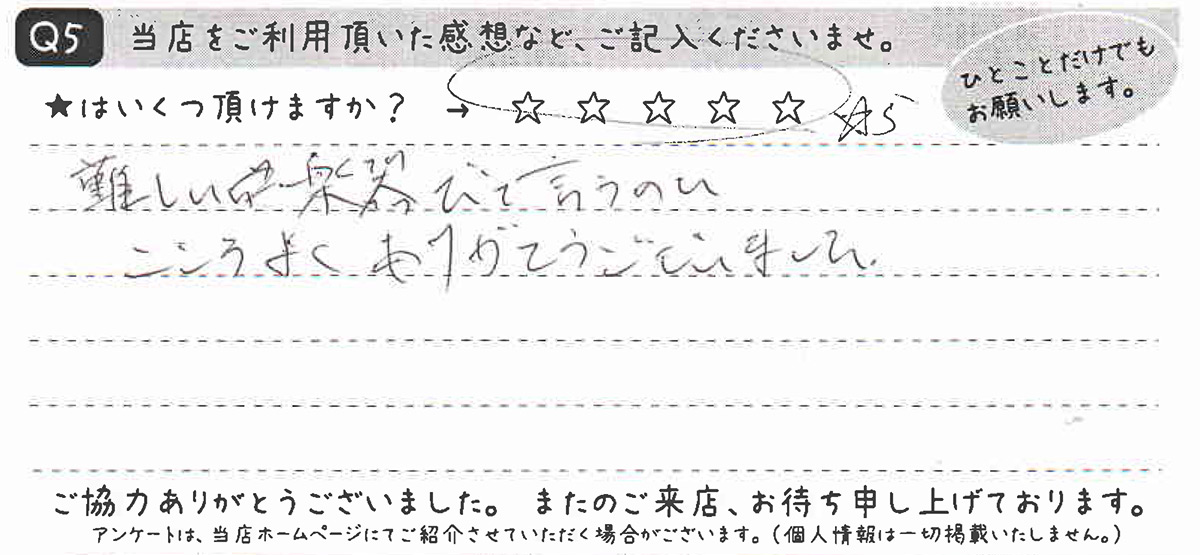 Q5 当店をご利用頂いた感想など、ご記入くださいませ。
ひとことだけでも
お願いします。
★はいくつ頂けますか？ → ☆ ☆ ☆ ☆ ☆ ☆5
難しい 楽器 言うのに
こころよく ありがとうございました。
ご協力ありがとうございました。 またのご来店、お待ち申し上げております。
アンケートは、当店ホームページにてご紹介させていただく場合がございます。（個人情報は一切掲載いたしません。）